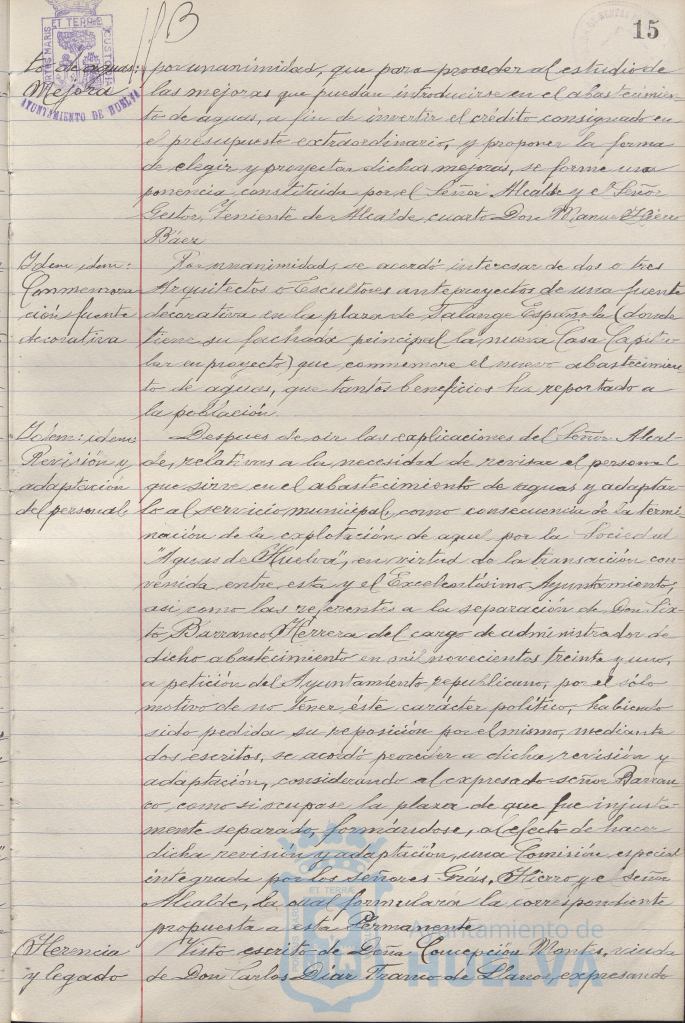 15
to de aguas:
Mejora
AYUNTAMIENTO DE HUELVA
por unanimidad, que para proceder al estudio de
las mejoras que puedan introducirse en el abastecimien-
to de aguas, a fin de invertir el crédito consignado en
el presupuesto extraordinario, y proponer la forma
de elegir y proyectar dichas mejoras, se forme una
ponencia constituida por el Señor Alcalde y el Señor
Gestor, Teniente de Alcalde cuarto Don Manuel Hierro
Báez
Idem idem:
Conmemora
ción fuente
decorativa
Por unanimidad, se acordó interesar de dos o tres
Arquitectos o Escultores anteproyectos de una fuente
decorativa en la plaza de Falange Española (donde
tiene su fachada principal la nueva Casa Capitu-
lar en proyecto) que conmemore el nuevo abastecimien-
to de aguas, que tantos beneficios ha reportado a
la población.
Idem: idem:
Revisión y
adaptación
del personal
Despues de oir las explicaciones del Señor Alcal-
de, relativas a la necesidad de revisar el personal
que sirve en el abastecimiento de aguas y adaptar-
lo al servicio municipal, como consecuencia de la termi-
nación de la explotación de aquel por la Sociedad
"Aguas de Huelva", en virtud de la transacción con-
venida entre esta y el Excelentísimo Ayuntamiento;
asi como las referentes a la separación de Don Six-
to Barranco Herrera del cargo de administrador de
dicho abastecimiento en mil novecientos treinta y uno,
a petición del Ayuntamiento republicano, por el sólo
motivo de no tener éste carácter político, habiendo
sido pedida su reposición por el mismo, mediante
dos escritos, se acordó proceder a dicha revisión y
adaptación, considerando al expresado señor Barran-
co, como si ocupase la plaza de que fue injusta-
mente separado, formándose, al efecto de hacer
dicha revisión y adaptación, una Comisión especial
integrada por los señores Grás, Hierro y el señor
Alcalde, la cual formulara la correspondiente
propuesta a esta Permanente
Herencia
y legado
Visto escrito de Doña Concepción Montes, viuda
de Don Carlos Díaz Franco de Llanos, expresando
Ayuntamiento de
HUELVA